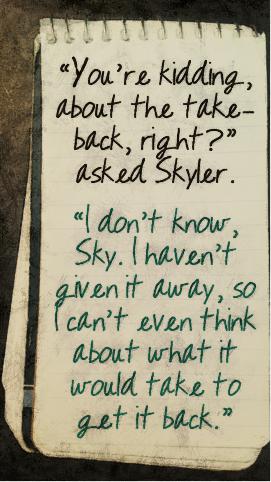 “You're kidding,
about the take-
back, right?”
asked Skyler.
“I don't know,
Sky. I haven't
given it away, so
I can't even think
about what it
would take to
get it back.”